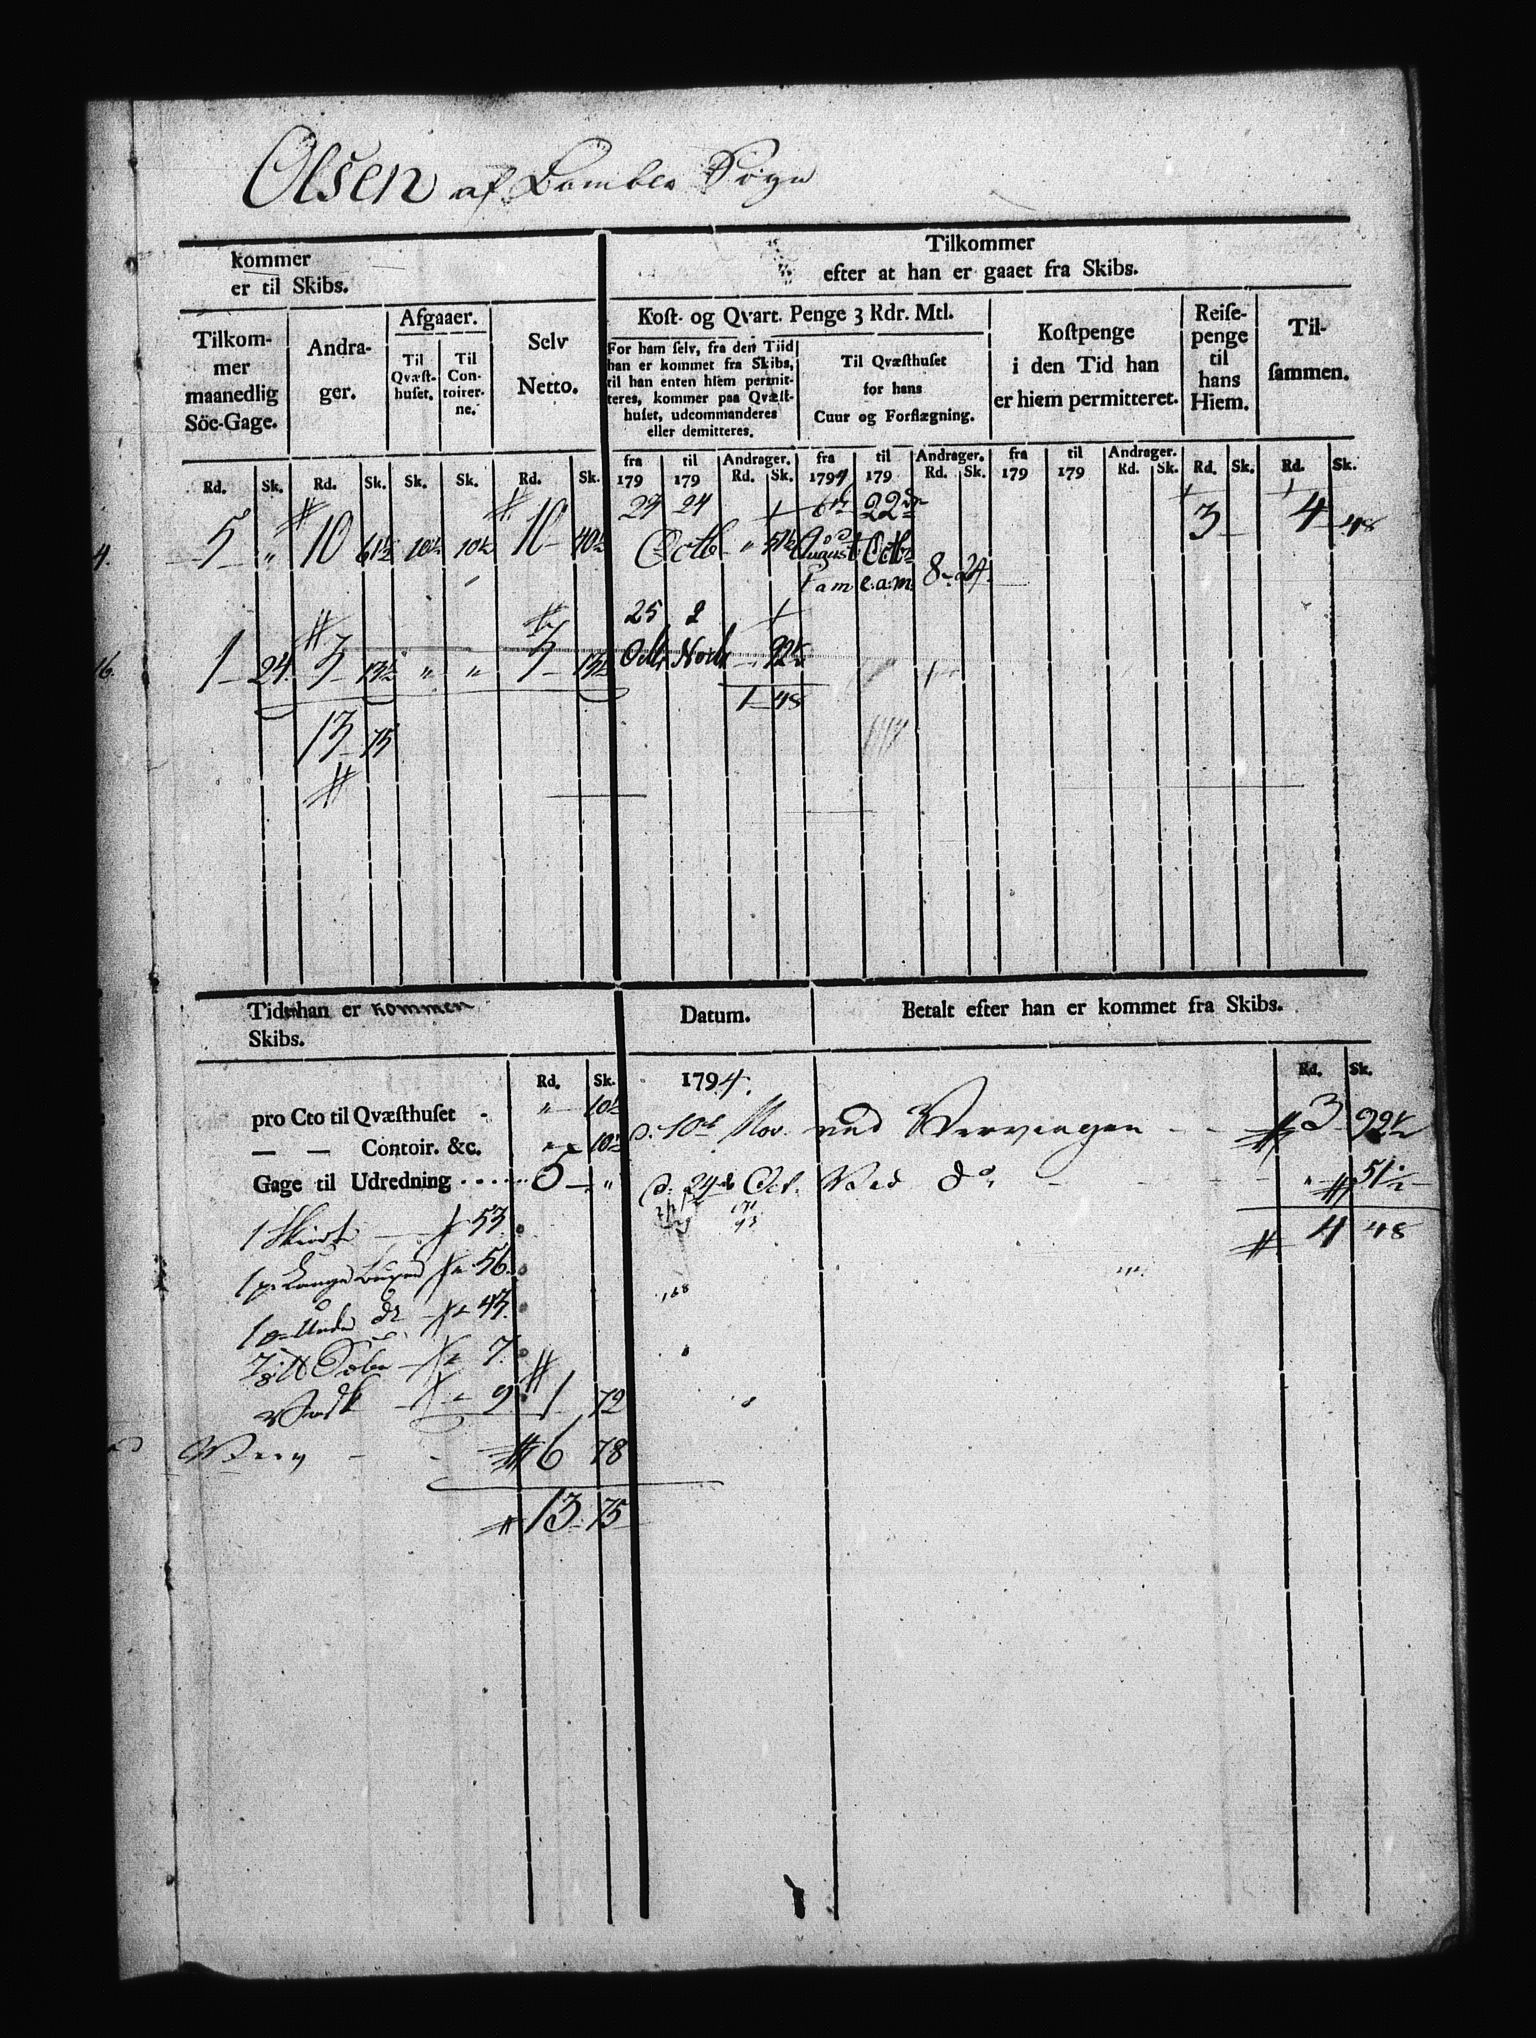 Olsen af Bamble Sogn
kommer
er til Skibs.
Tilkommer
efter at han er gaaet fra Skibs.
Tilkom-
mer
maanedlig
Söe-Gage.
Andra-
ger.
Afgaaer.
Til
Qvæst-
huset.
Til
Con-
toirer-
ne.
Selv
Netto.
Kost- og Qvart. Penge 3 Rdr. Mtl.
For ham selv, fra den Tiid
han er kommet fra Skibs,
til han enten hiem permit-
teres, kommer paa Qvæst-
huset, udcommanderes
eller demitteres.
Til Qvæsthuset
for hans
Cuur og Forflægning.
Kostpenge
i den Tid han
er hiem permitteret.
Reise-
penge
til
hans
Hiem.
Til-
sammen.
fra til Andrager. fra til Andrager. fra til Andrager.
Rd. Sk. Rd. Sk. Sk. Sk. Rd. Sk. 179 179 Rd. Sk. 1794 179 Rd. Sk. 179 179 Rd. Sk. Rd. Sk. Rd. Sk.
24 24 22de
4. 5 " 10 61½ 10½ 10½ 10 40½ Octb - " 51½ August Octb 3 4 48
e.a.m. 8 24
25 2
16. 1 24 3 13½ " " 3 13½ Octb Novb 92½
1 48
13 75
Tiden han er kommen
Skibs.
Datum.
Betalt efter han er kommet fra Skibs.
Rd. Sk. 1794. Rd. Sk.
pro Cto til Qvæsthuset - " 10½
— — Contoir. &c. " 10½
d: 10de Nov. ved Werveingen - - 3 92½
Gage til Udredning ...... 5 - "
d. 24de Oct. Ved do - - - " 51½
4 48
1 Skiorte 53
1 pr Lange Buxer 56
1 pr Under do 43
7
Vadsk 9 1 72
Werv - - 6 78
13 75